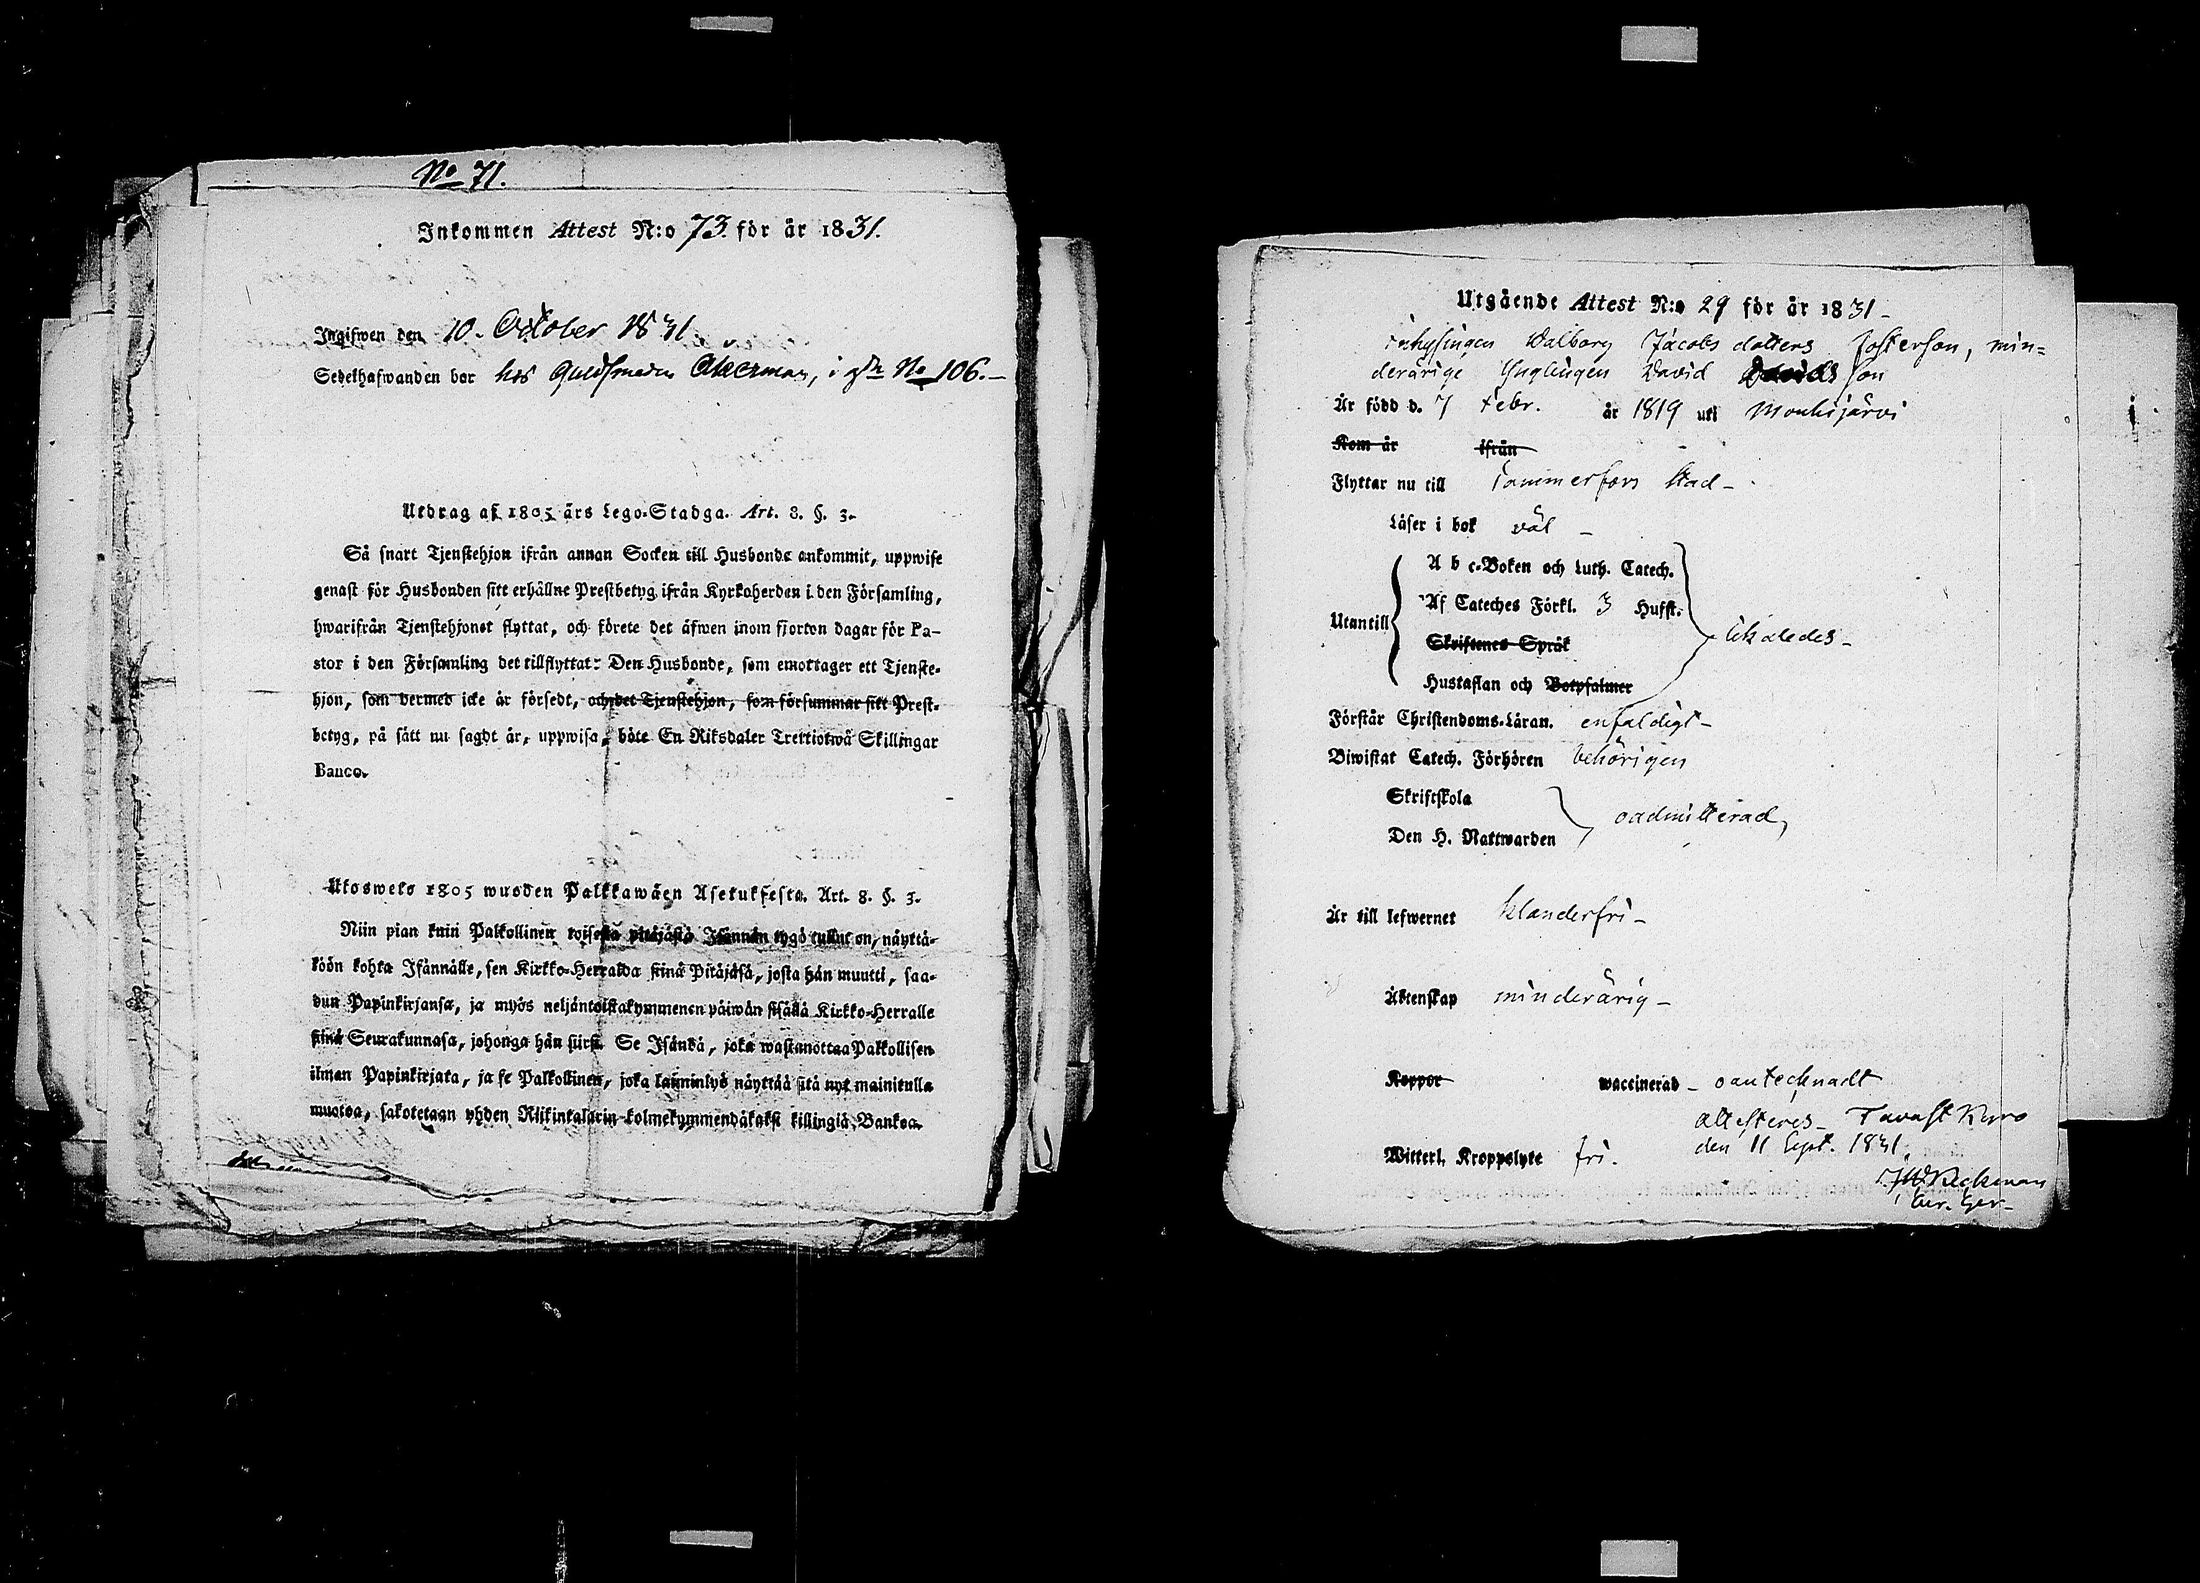 No 71.
Inkommen Attest N:o 73. för år 1831.
Ingifwen den 10. October 1831.
Sedelhafwanden bor hos Guldsmeden Åkerman, i gdn No 106.
Utdrag af 1805 års Lego-Stadga. Art. 8. §. 3.
Så snart Tjenstehjon ifrån annan Socken till Husbonde ankommit, uppwise
genast för Husbonden sitt erhållne Prestbetyg ifrån Kyrkoherden i den Församling,
hwarifrån Tjenstehjonet flyttat, och förete det äfwen inom fjorton dagar för Pa-
stor i den Församling det tillflyttat: Den Husbonde, som emottager ett Tjenste-
hjon, som dermed icke är försedt, och det Tjenstehjon, som försummar sitt Prest-
betyg, på sätt nu sagdt är, uppwisa, böte En Riksdaler Trettiotwå Skillingar
Banco.
Utoswoto 1805 wuoden Palkkawäen Asetuksesta. Art. 8. §. 3.
Niin pian kuin Palkollinen toisesta pitäjästä Isännän tygö tullut on, näyttä-
köön kohta Isännälle, sen Kirkko-Herralda siinä Pitäjäsä, josta hän muutti, saa-
dun Papinkirjansa, ja myös neljäntoistakymmenen päiwän sisällä Kirkko-Herralle
siinä Seurakunnasa, johonga hän siirsi. Se Isändä, joka wastanottaa Palkollisen
ilman Papinkirjata, ja se Palkollinen, joka laiminlyö näyttää sitä nyt mainitulla
muotoa, sakotetaan yhden Riikintalarin kolmekymmendäkaksi killingiä Bankoa.
Utgående Attest N:o 29 för år 1831
inhysingen Walborg Jacobs dotters fosterson, min-
derårige Ynglingen David Davids son
Är född d. 7 Febr. år 1819 uti Mouhijärvi
Kom år ifrån
Flyttar nu till Tammerfors Stad
Läser i bok väl
A b c-Boken och Luth. Catech.
Af Cateches Förkl. 3 Hufst.
Utantill likaledes
Skriftenes Språk
Hustaflan och Botpsalmer
Förstår Christendoms-Läran. enfaldigt
Biwistat Catech. Förhören behörigen
Skriftskola
oadmitterad
Den H. Nattwarden
Är till lefwernet klanderfri
Äktenskap minderårig
Koppor waccinerad oantecknadt
attesteras Tavast Kyro
den 11 Sept. 1831.
Witterl. Kroppslyte fri.